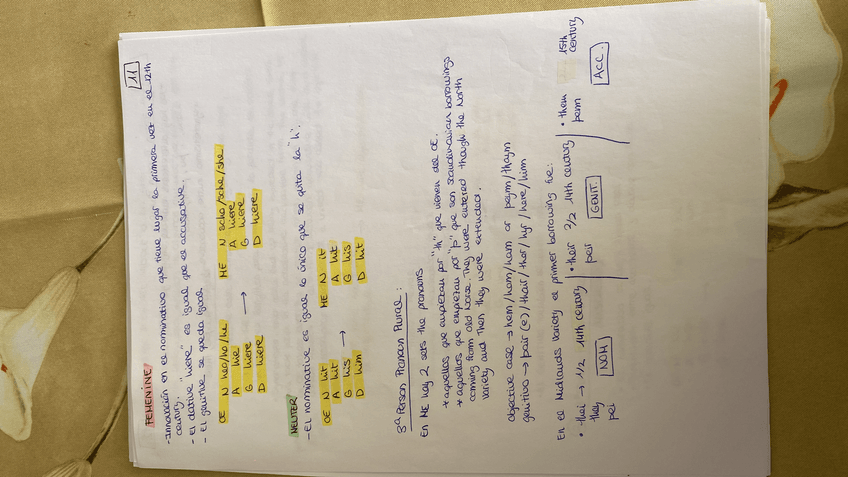 11
FEMENINE
- Innovación en el nominativo que tiene lugar la primera vez en el 12th
century.
- El dative "hiere" es igual que el accusative.
- El genitive se queda igual.
OE N heo/ho/he → ME N scho/sche/she
A hie A hiere
G hiere G hiere
D hiere D hiere
NEUTER
- El nominative es igual lo único que se quita la "h".
OE N hit → ME N it
A hit A hit
G his G his
D him D hit
3ª Person Pronoun Plural:
En ME hay 2 sets the pronouns
+ aquellos que empiezan por "h" que vienen del OE.
+ aquellos que empiezan por "þ" que son scandinavian borrowings
coming from old Norse. They were entered though the North
variety and then they were extended.
objective case → hem/hom/ham or þeym/thaym
genitivo → þair(e)/thair/ther/hyr/here/him
En el Midlands variety el primer borrowing fue:
• thei → 1/2 14th century | • their 2/2 14th century | • them 15th century
they þeir þem
þei
NOM GENIT. ACC.